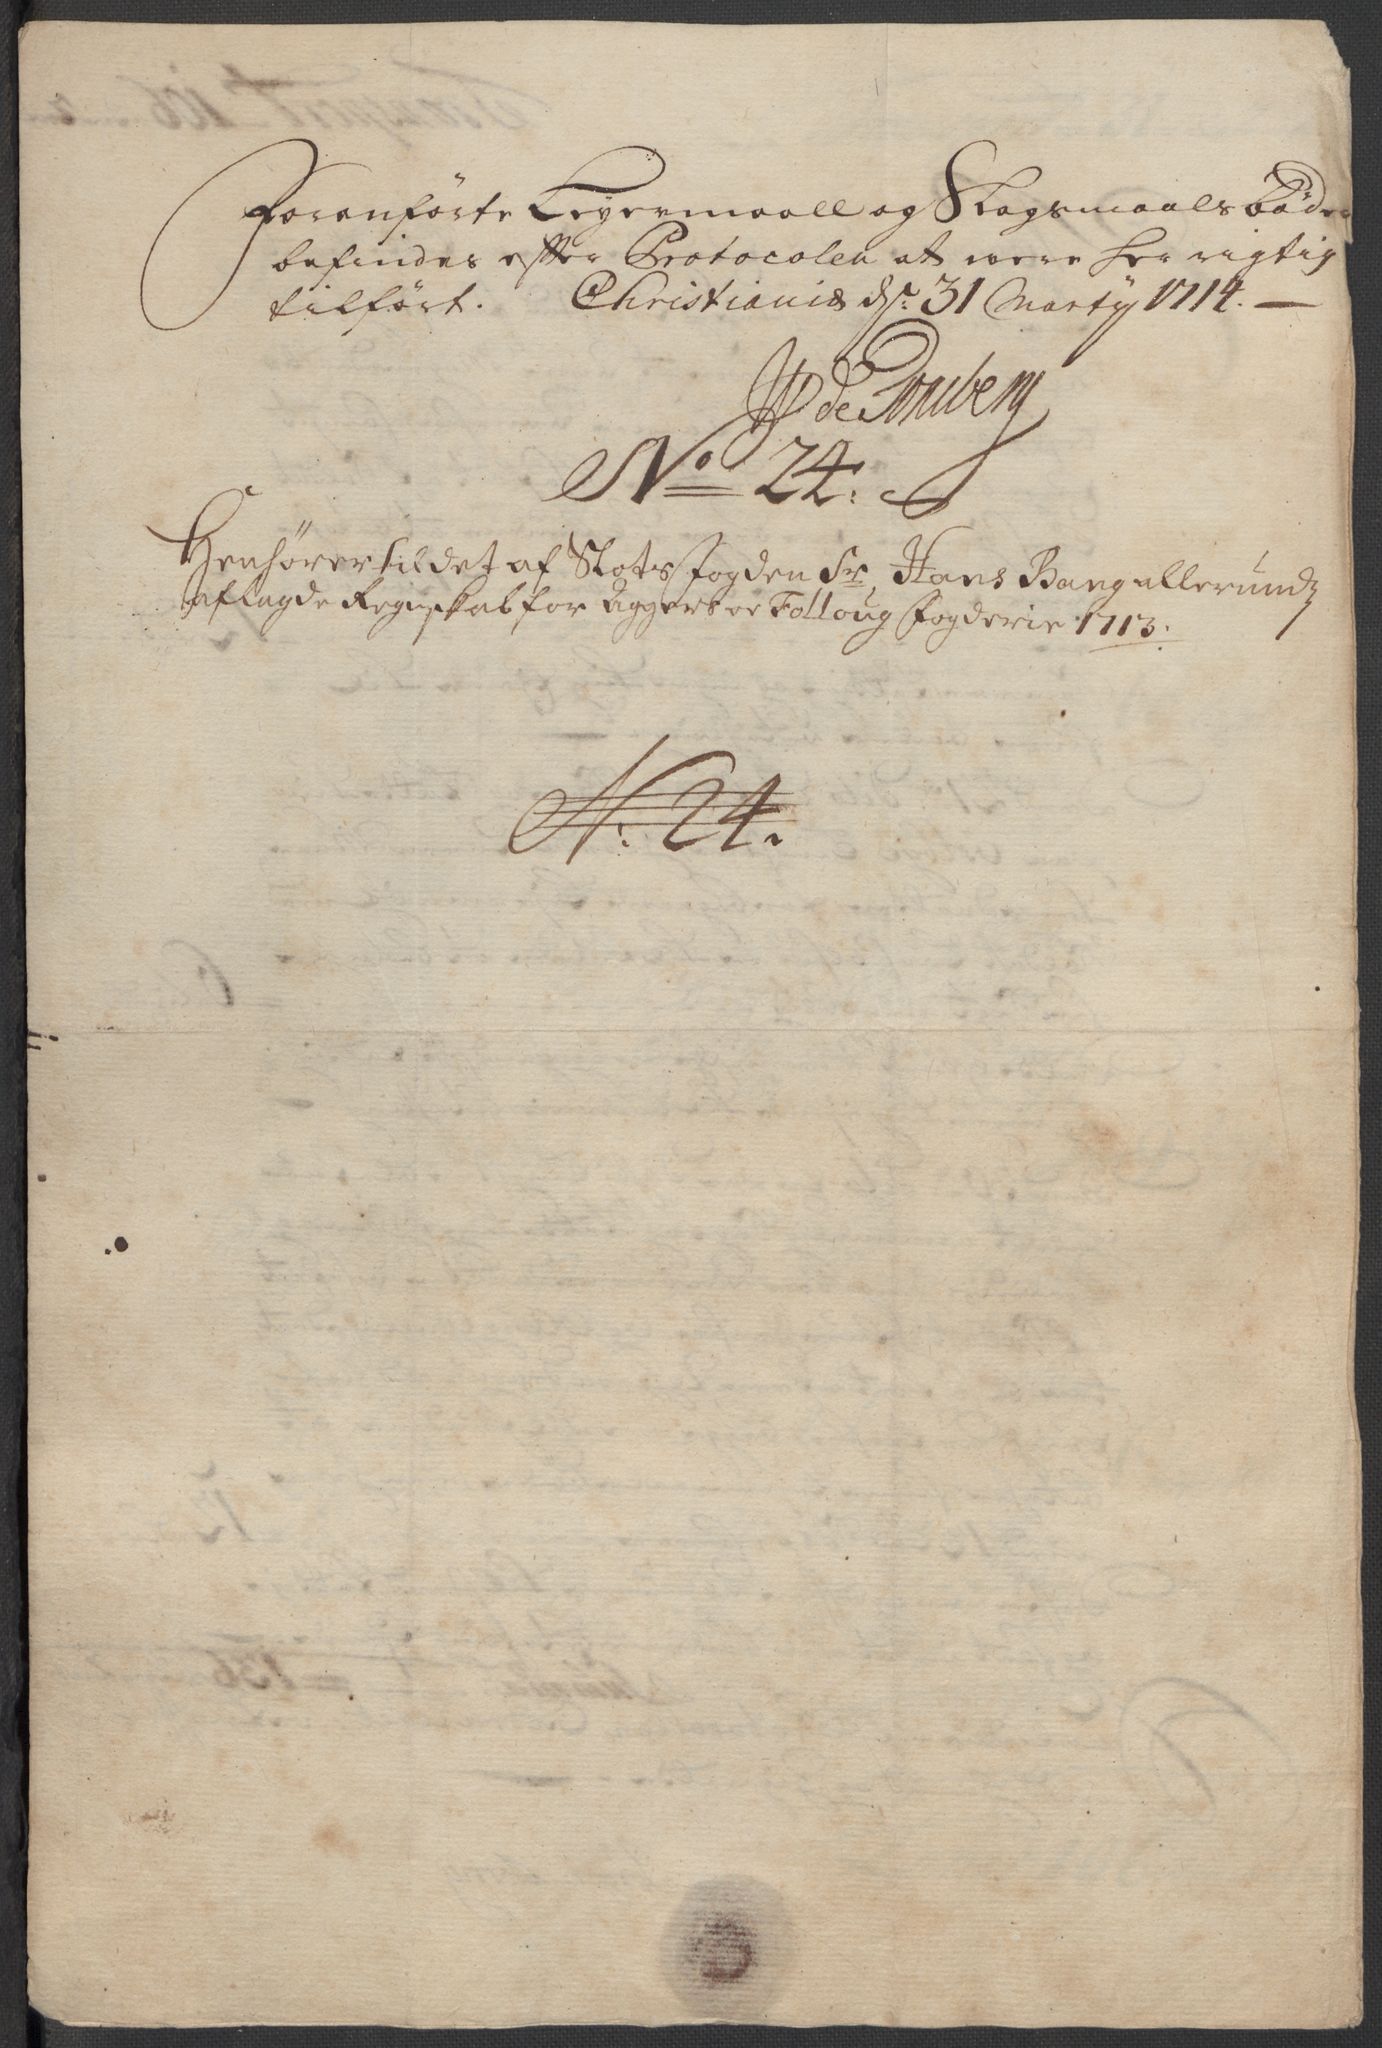 Foranførte Leyermaall og Slagsmaals bøder
befindes efter Protocolen at were her rigtig
tilført. Christiania ds: 31 Marty 1714. —
de Tonsberg
No 24:
Henhører til det af Slots fogden Sr. Hans Bang allerund:
aflagde Regnskab for Aggers oc Folloug fogderie 1713.
N: 24.